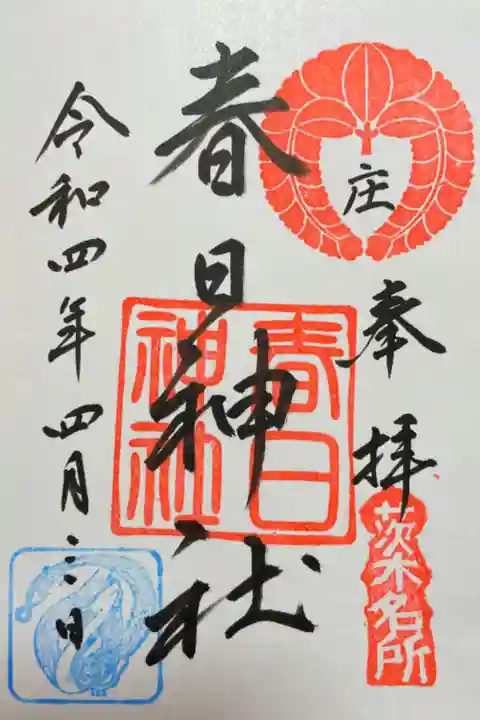 庄
奉拝
茨木名所
春日神社
春日神社
令和四年四月三日